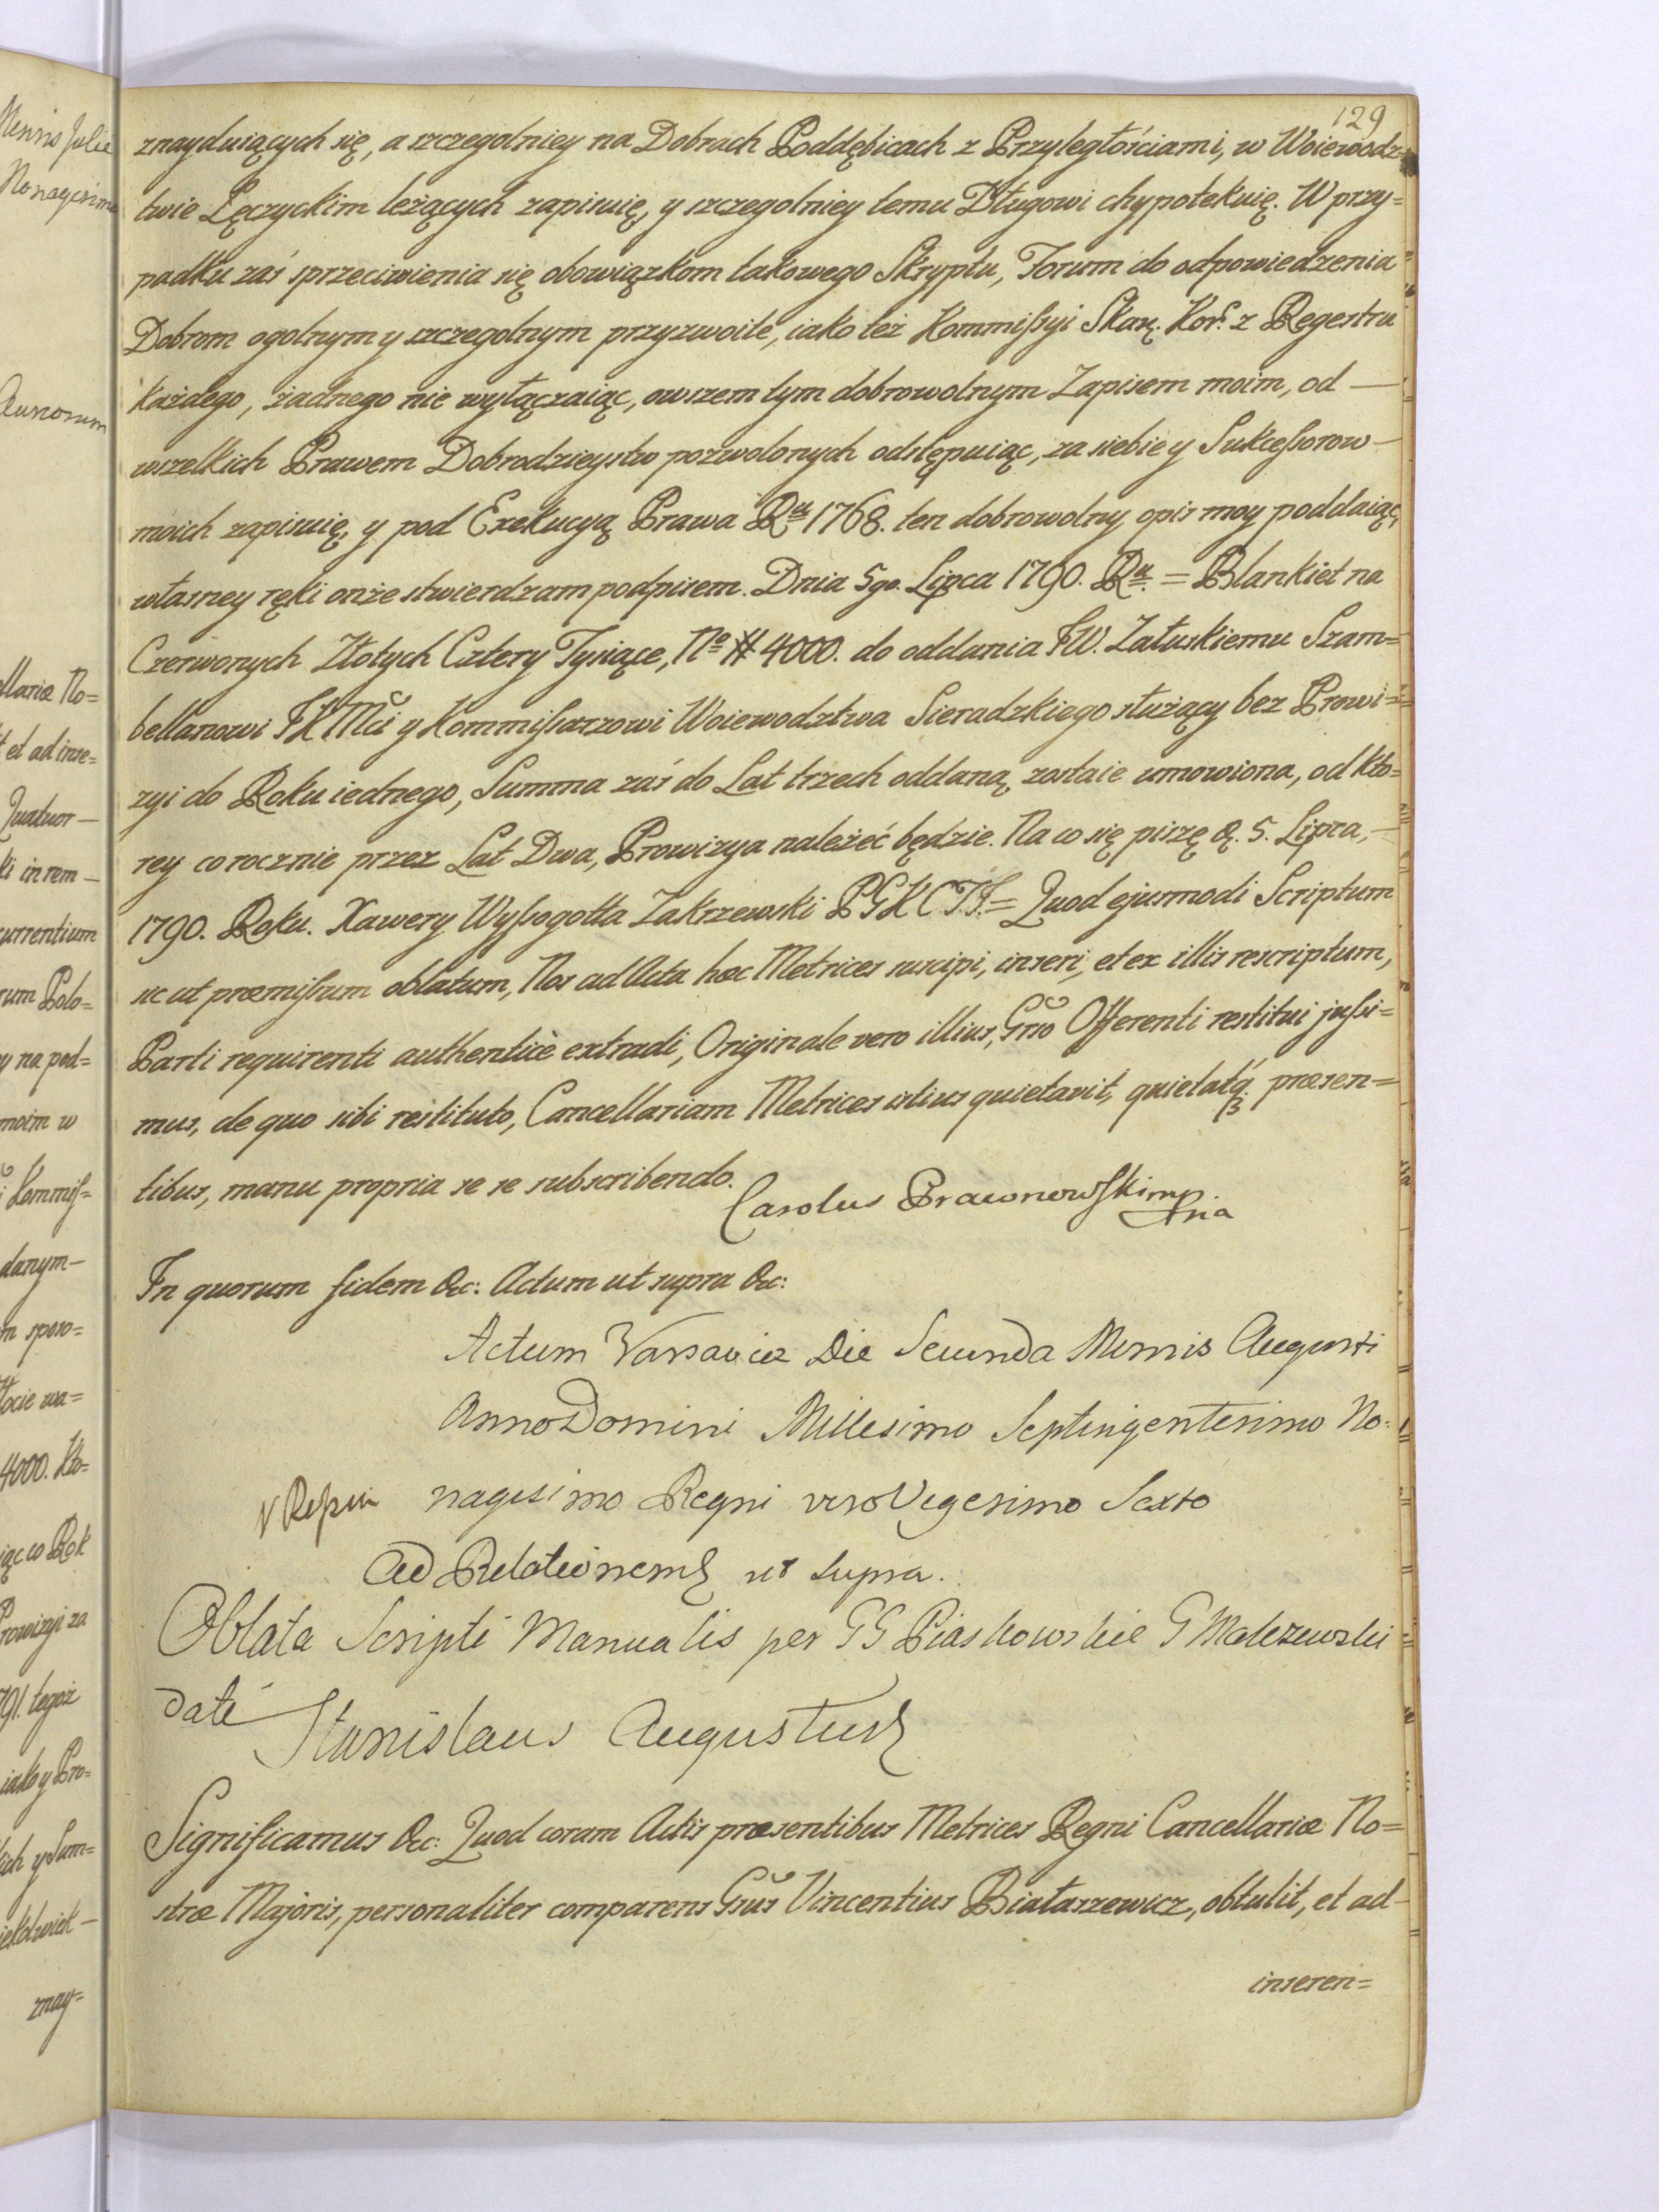 129
znayduiących się, a szczegolniey na Dobrach Poddębicach z Przyległościami, w Woiewodz=
twie Łęczyckim leżących zapisuię, y szczegolniey temu Długowi chypotekuię. W przy=
padku zaś sprzeciwienia się obowiązkom takowego Skryptu, Forum do odpowiedzenia
Dobrom ogolnym y szczegolnym przyzwoite, iako też Kommissyi Skar. Kor. z Regestru
każdego, żadnego nie wyłączaiąc, owszem tym dobrowolnym Zapisem moim, od —
wszelkich Prawem Dobrodzieystw pozwolonych odstępuiąc, za siebie y Sukcessorow —
moich zapisuię, y pod Exekucyą Prawa Ru 1768. ten dobrowolny opis moy poddaiąc,
własney ręki onże stwierdzam podpisem. Dnia 5go. Lipca 1790. Ru. = Blankiet na
Czerwonych Złotych Cztery Tysiące, No # 4000. do oddania JW. Załuskiemu Szam=
bellanowi JKMci y Kommissarzowi Woiewodztwa Sieradzkiego służący bez Prowi=
zyi do Roku iednego, Summa zaś do Lat trzech oddaną zostaie umowiona, od kto=
rey corocznie przez Lat Dwa, Prowizya należeć będzie. Na co się piszę D. 5. Lipca, —
1790. Roku. Xawery Wyssogotta Zakrzewski PGKCTJ. = Quod ejusmodi Scriptum
sic ut præmissum oblatum, Nos ad Acta hæc Metrices suscipi, inseri, et ex illis rescriptum,
Parti requirenti authenticè extradi, Originale vero illius, Gnso Offerenti restitui jussi=
mus, de quo sibi restituto, Cancellariam Metrices istius quietavit, quietatq3 præsen=
tibus, manu propria se se subscribendo.
Carolus Brawnowski mp.
pria
In quorum fidem &c: Actum ut supra &c:
Actum Varsaviæ Die Secunda Mensis Augusti
Anno Domini Millesimo Septingentesimo No=
nagesimo Regni vero Vigesimo Sexto
Ad Relationem ut supra.
Oblata Scripti Manualis per GG Piaskowskie G Malczewski
Dati
Stanislaus Augustus
Significamus &c: Quod coram Actis præsentibus Metrices Regni Cancellariæ No=
stræ Majoris, personaliter comparens Gnsus Vincentius Białaszewicz, obtulit, et ad —
inseren=